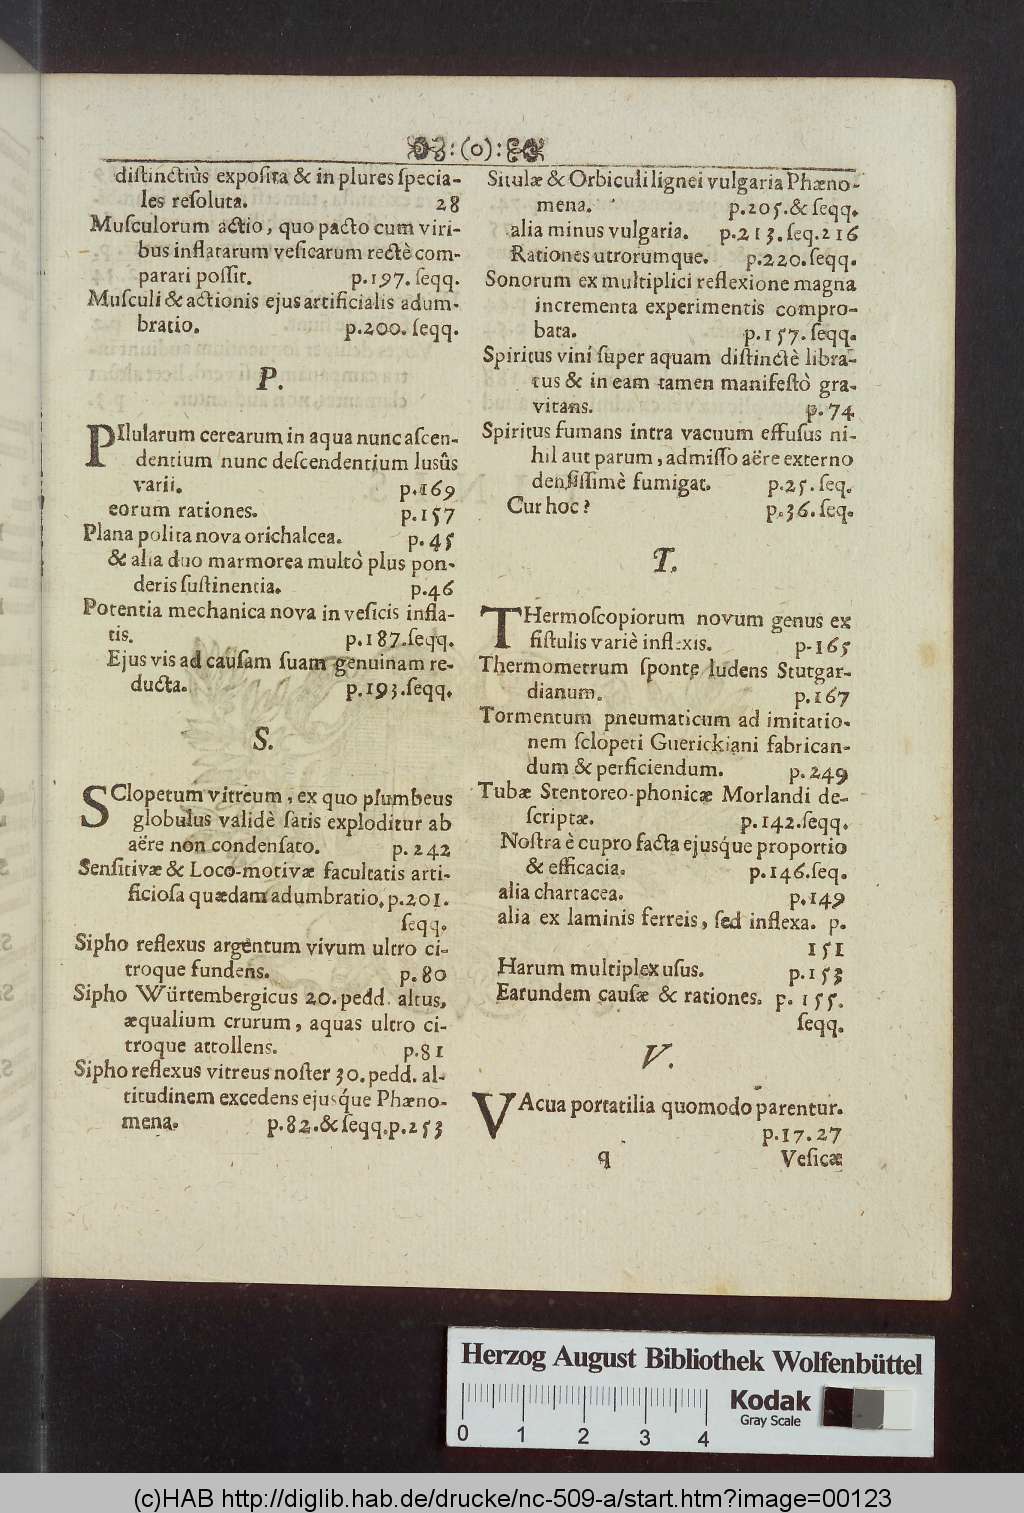 :(o):
distinctiùs exposita & in plures specia-
les resoluta. 28
Musculorum actio, quo pacto cum viri-
bus inflatarum vesicarum rectè com-
parari possit. p.197. seqq.
Musculi & actionis ejus artificialis adum-
bratio. p.200. seqq.
P.
PIlularum cerearum in aqua nunc ascen-
dentium nunc descendentium lusûs
varii. p.169
eorum rationes. p.157
Plana polita nova orichalcea. p.45
& alia duo marmorea multò plus pon-
deris sustinentia. p.46
Potentia mechanica nova in vesicis infla-
tis. p.187.seqq.
Ejus vis ad causam suam genuinam re-
ducta. p.193.seqq.
S.
SClopetum vitreum, ex quo plumbeus
globulus validè satis exploditur ab
aëre non condensato. p.242
Sensitivæ & Loco-motivæ facultatis arti-
ficiosa quædam adumbratio. p.201.
seqq.
Sipho reflexus argentum vivum ultro ci-
troque fundens. p.80
Sipho Würtembergicus 20. pedd. altus,
æqualium crurum, aquas ultro ci-
troque attollens. p.81
Sipho reflexus vitreus noster 30. pedd. al-
titudinem excedens ejusq́ue Phæno-
mena. p.82.& seqq.p.253
Situlæ & Orbiculi lignei vulgaria Phæno-
mena. p.205.& seqq.
alia minus vulgaria. p.213.seq.216
Rationes utrorumque. p.220.seqq.
Sonorum ex multiplici reflexione magna
incrementa experimentis compro-
bata. p.157.seqq.
Spiritus vini super aquam distinctè libra-
tus & in eam tamen manifestò gra-
vitans. p.74
Spiritus fumans intra vacuum effusus ni-
hil aut parum, admisso aëre externo
densissimè fumigat. p.25.seq.
Cur hoc? p.36.seq.
T.
THermoscopiorum novum genus ex
fistulis variè inflexis. p.165
Thermometrum sponte ludens Stutgar-
dianum. p.167
Tormentum pneumaticum ad imitatio-
nem sclopeti Guerickiani fabrican-
dum & perficiendum. p.249
Tubæ Stentoreo-phonicæ Morlandi de-
scriptæ. p.142.seqq.
Nostra è cupro facta ejusq́ue proportio
& efficacia. p.146.seq.
alia chartacea. p.149
alia ex laminis ferreis, sed inflexa. p.
151
Harum multiplex usus. p.153
Earundem causæ & rationes. p.155.
seqq.
V.
VAcua portatilia quomodo parentur.
p.17.27
q Vesicæ
Herzog August Bibliothek Wolfenbüttel
Kodak
Gray Scale
0 1 2 3 4
(c)HAB http://diglib.hab.de/drucke/nc-509-a/start.htm?image=00123